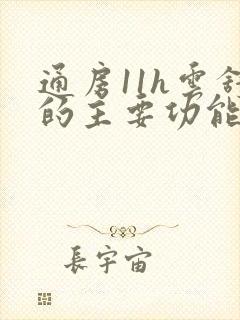 通房11h雲舒
的主要功能
長宇宙